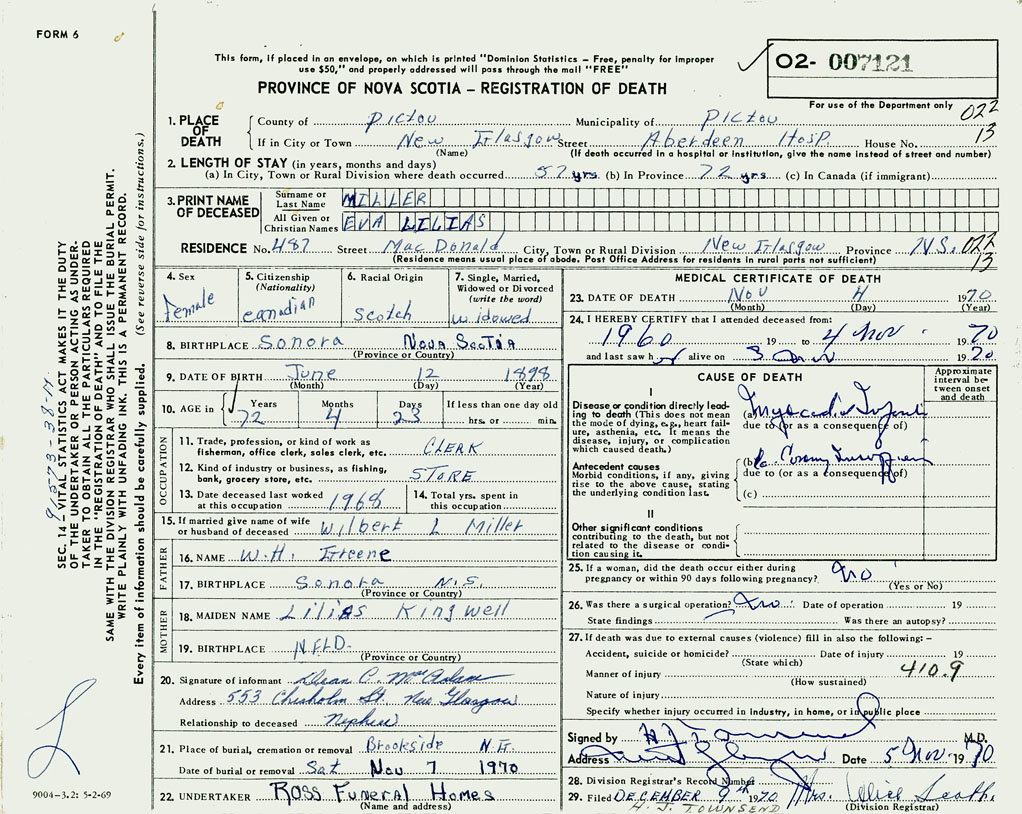 FORM 6
This form, if placed in an envelope, on which is printed "Dominion Statistics – Free, penalty for improper
use $50," and properly addressed will pass through the mail "FREE"
02- 007121
PROVINCE OF NOVA SCOTIA – REGISTRATION OF DEATH
For use of the Department only
022
13
1. PLACE OF DEATH
County of Pictou Municipality of Pictou
If in City or Town New Glasgow Street Aberdeen Hosp. House No.
(Name) (If death occurred in a hospital or institution, give the name instead of street and number)
2. LENGTH OF STAY (in years, months and days)
(a) In City, Town or Rural Division where death occurred 52 yrs (b) In Province 72 yrs. (c) In Canada (if immigrant)
3. PRINT NAME OF DECEASED
Surname or Last Name MILLER
All Given or Christian Names EVA LILIAS
RESIDENCE No. 487 Street MacDonald City, Town or Rural Division New Glasgow Province N.S. 022
13
(Residence means usual place of abode. Post Office Address for residents in rural parts not sufficient)
4. Sex
Female
5. Citizenship
(Nationality)
Canadian
6. Racial Origin
Scotch
7. Single, Married,
Widowed or Divorced
(write the word)
Widowed
8. BIRTHPLACE Sonora Nova Scotia
(Province or Country)
9. DATE OF BIRTH June 12 1898
(Month) (Day) (Year)
10. AGE in
Years Months Days If less than one day old
72 4 23 hrs. or min.
OCCUPATION
11. Trade, profession, or kind of work as
fisherman, office clerk, sales clerk, etc. CLERK
12. Kind of industry or business, as fishing,
bank, grocery store, etc. STORE
13. Date deceased last worked
at this occupation 1968
14. Total yrs. spent in
this occupation
15. If married give name of wife
or husband of deceased Wilbert L Miller
FATHER
16. NAME W.H. Greene
17. BIRTHPLACE Sonora N.S.
(Province or Country)
MOTHER
18. MAIDEN NAME Lilias Kingwell
19. BIRTHPLACE NFLD.
(Province or Country)
20. Signature of informant Dean C. MacAdam
Address 553 Chisholm St. New Glasgow
Relationship to deceased Nephew
21. Place of burial, cremation or removal Brookside N.G.
Date of burial or removal Sat Nov 7 1970
22. UNDERTAKER Ross Funeral Homes
(Name and address)
MEDICAL CERTIFICATE OF DEATH
23. DATE OF DEATH Nov 4 1970
(Month) (Day) (Year)
24. I HEREBY CERTIFY that I attended deceased from:
1960 19 to 4 Nov 1970
and last saw h alive on 3 1970
CAUSE OF DEATH
Approximate
interval be-
tween onset
and death
I
Disease or condition directly lead-
ing to death (This does not mean
the mode of dying, e.g., heart fail-
ure, asthenia, etc. It means the
disease, injury, or complication
which caused death.)
(a)
due to (or as a consequence of)
Antecedent causes
Morbid conditions, if any, giving
rise to the above cause, stating
the underlying condition last.
(b)
due to (or as a consequence of)
(c)
II
Other significant conditions
contributing to the death, but not
related to the disease or condi-
tion causing it.
25. If a woman, did the death occur either during
pregnancy or within 90 days following pregnancy? No
(Yes or No)
26. Was there a surgical operation? No Date of operation 19
State findings Was there an autopsy?
27. If death was due to external causes (violence) fill in also the following: –
Accident, suicide or homicide? Date of injury 19
(State which)
410.9
Manner of injury
(How sustained)
Nature of injury
Specify whether injury occurred in industry, in home, or in public place
Signed by M.D.
Address Date 5 Nov 1970
28. Division Registrar's Record Number
29. Filed DECEMBER 9th 1970 Mrs.
H. J. TOWNSEND (Division Registrar)
SEC. 14 – VITAL STATISTICS ACT MAKES IT THE DUTY
OF THE UNDERTAKER OR PERSON ACTING AS UNDER-
TAKER TO OBTAIN ALL THE PARTICULARS REQUIRED
IN THE "REGISTRATION OF DEATH" AND TO FILE THE
SAME WITH THE DIVISION REGISTRAR WHO SHALL ISSUE THE BURIAL PERMIT.
WRITE PLAINLY WITH UNFADING INK. THIS IS A PERMANENT RECORD.
Every item of information should be carefully supplied. (See reverse side for instructions.)
9004-3.2: 5-2-69